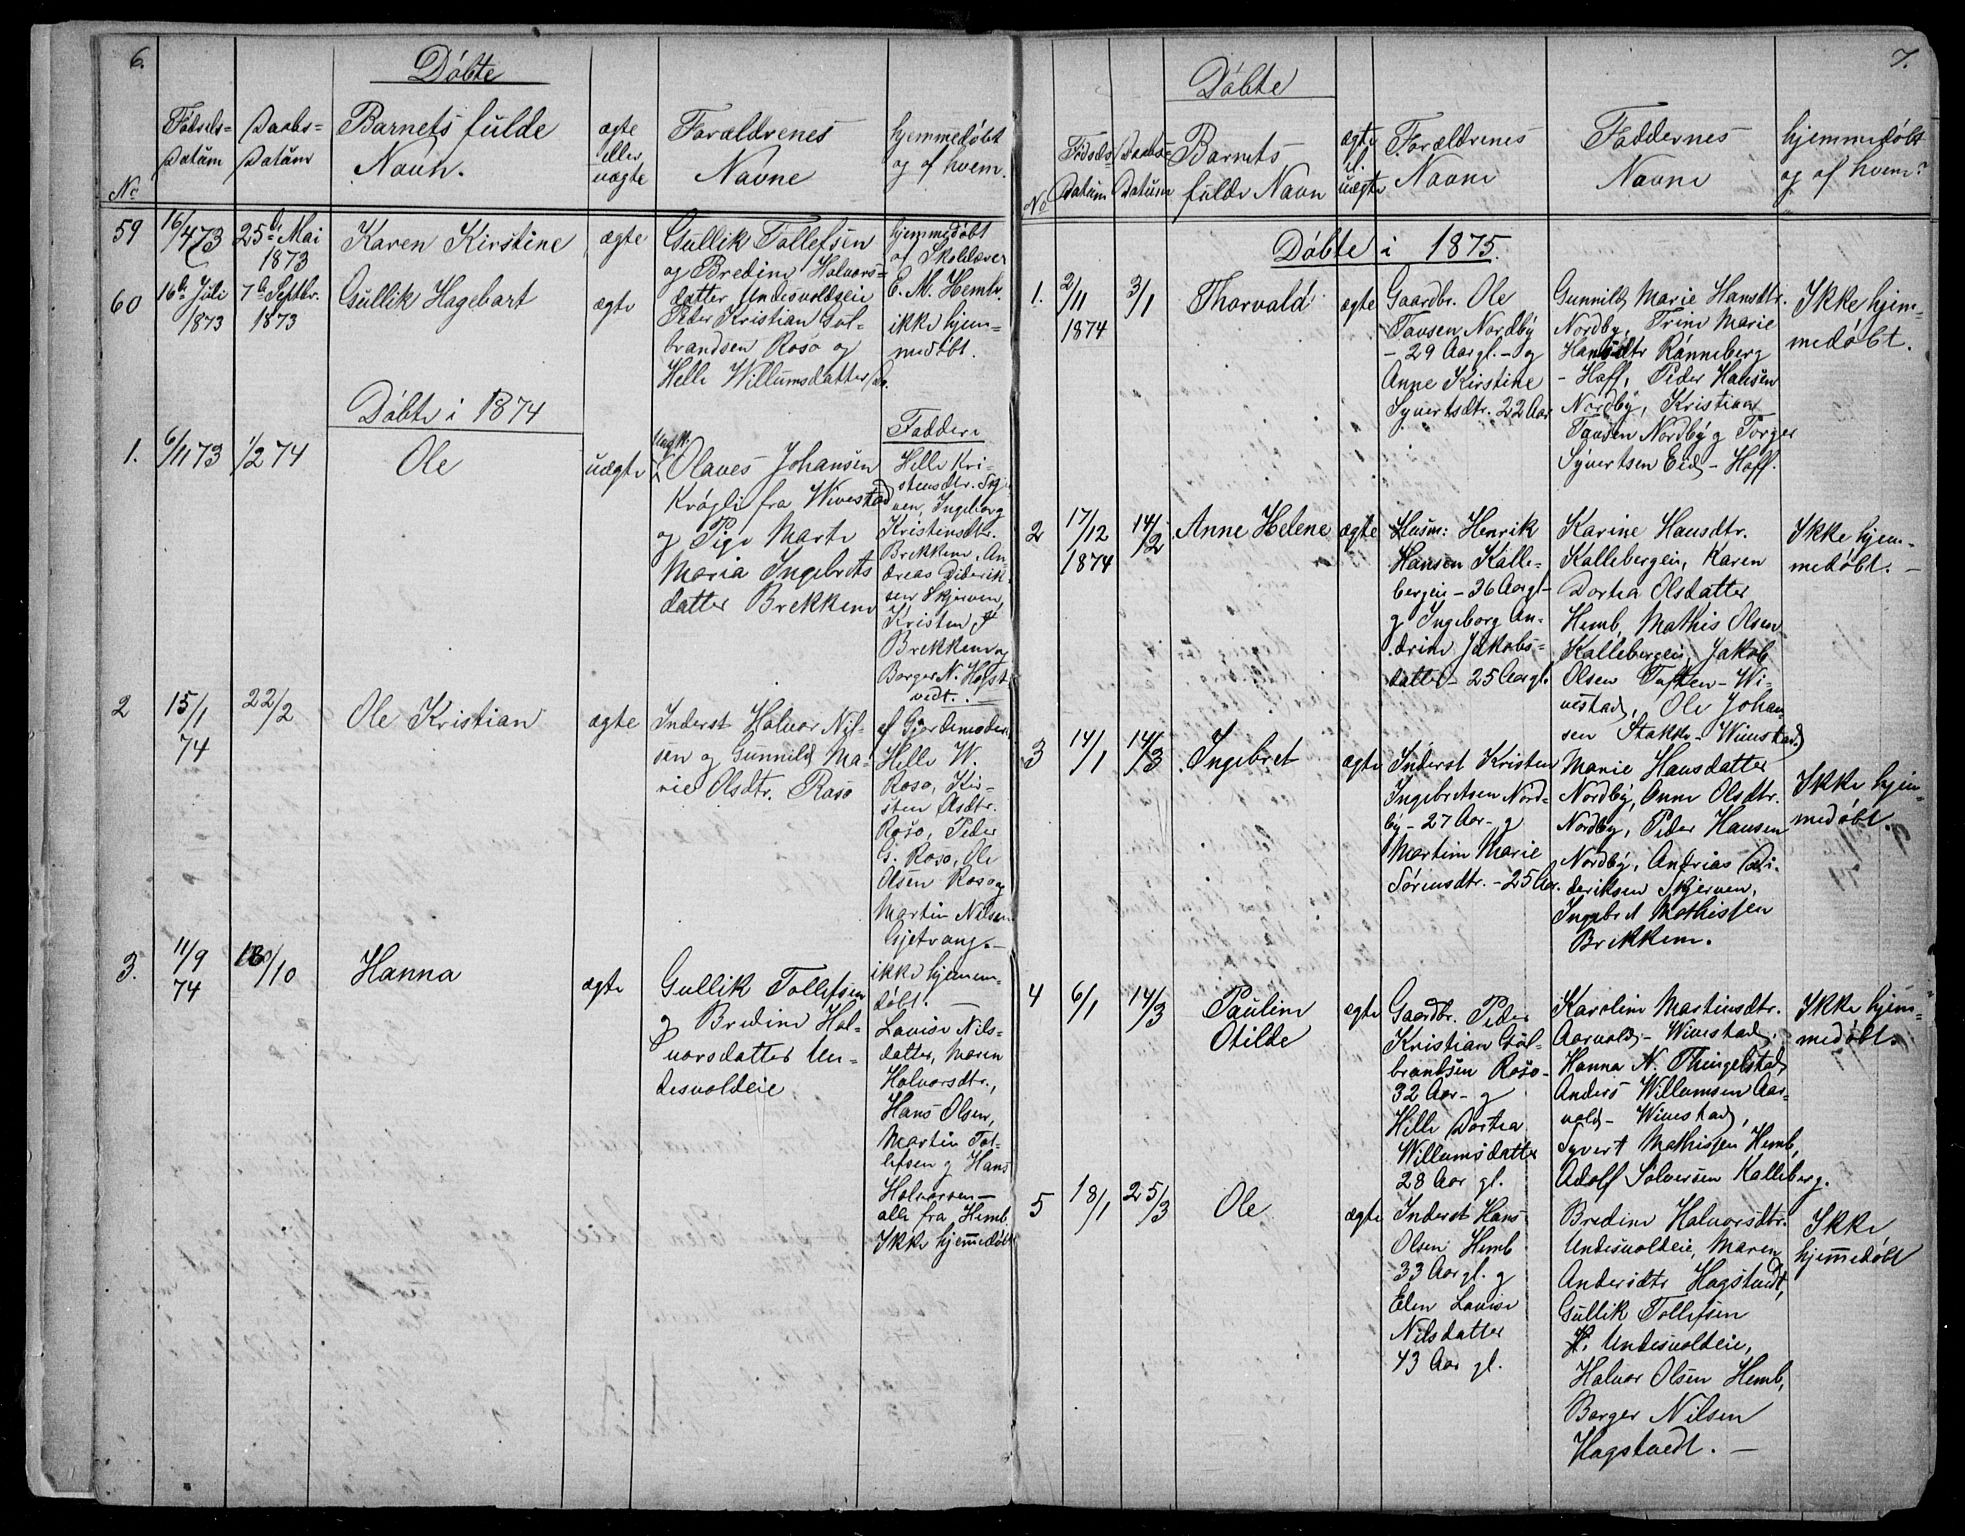 6.
Døbte
No
Fødsels-
Datum
Daabs-
Datum
Barnets fulde
Navn.
ægte
eller
uægte
Forældrenes
Navne
hjemmedøbt
og af hvem.
59
16/4 73
25de Mai
1873
Karen Kirstine
ægte
Gullik Tollefsen
og Bredine Halvors-
datter Undesvoldeie
hjemmedøbt
af Skolelærer
E. M. Hemb.
60
16de Juli
1873
7de Septbr.
1873
Gullik Hagebart
ægte
Peder Kristian Gul-
brandsen Roso og
Helle Willumsdatter do.
ikke hjem-
medøbt.
Døbte i 1874
Faddere
1.
6/11 73
1/2 74
Ole
uægte
Ungk.
Olaves Johansen
Krøgli fra Wivestad
og Pige Marte
Maria Ingebrets
datter Brekkene
Helle Kri-
stensdtr.
ven, Ingeborg
Kristensdtr.
Brekkene, An-
dreas Diderik-
sen Skjerven,
Kristen
Brekkene og
Borger N. Hagst-
vedt.
2
15/1
74
22/2
Ole Kristian
ægte
Inderst Halvor Nil-
sen og Gunnild Ma-
rie Olsdtr. Roso
af Gjordemoder
Helle W.
Roso, Kir-
sten Asdtr.
Roso, Peder
G. Roso, Ole
Olsen Roso og
Martin Nilsen
Gjetvang.-
3.
11/9
74
18/10
Hanna
ægte
Gullik Tollefsen
og Bredine Hal-
vorsdatter Un-
desvoldeie
ikke hjemme-
døbt.
Lovise Nils-
datter, Maren
Halvorsdtr.,
Hans Olsen,
Martin Tol-
lefsen og Hans
Halvorsen -
alle fra Hemb
Ikke hjemmedøbt
7.
Døbte
No
Fødsels-
Datum
Daabs-
Datum
Barnets
fulde Navn
ægte
el.
uægte
Forældrenes
Navne
Faddernes
Navne
hjemmedøbt
og af hvem?
Døbte i 1875.
1.
2/11
1874
3/1
Thorvald
ægte
Gaardbr. Ole
Tavsen Nordby
- 29 Aar gl. - og
Anne Kirstine
Syvertsdtr. 22 Aar
Gunnild Marie Hansdtr.
Nordby, Trine Marie
Hansdtr Rønneberg
- Hoff, Peder Hansen
Nordby, Kristian
Tavsen Nordby og Torger
Syvertsen Eid - Hoff.
Ikke hjem-
medøbt.
2
17/12
1874
14/2
Anne Helene
ægte
Husm: Henrik
Hansen Kalle-
bergeie - 36 Aar gl -
og Ingeborg An-
drine Jakobs-
datter - 25 Aar gl.
Karine Hansdtr.
Kallebergeie, Karen
Dortea Olsdatter
Hemb, Mathis Olsen
Kallebergeie, Jakob
Olsen Toften - Wi-
vestad, Ole Johan-
sen Stakke - Wivestad
Ikke hjem-
medøbt. -
3
14/1
14/3
Ingebret
ægte
Inderst Kristen
Ingebretsen Nord-
by - 27 Aar - og
Martine Marie
Sørensdtr. - 25 Aar.
Marie Hansdatter
Nordby, Anne Olsdtr.
Nordby, Peder Hansen
Nordby, Andrias Di-
deriksen Skjerven,
Ingebret Mathissen
Brekkene.
Ikke hjem-
medøbt
4
6/1
14/3
Pauline
Otilde
ægte
Gaardbr. Peder
Kristian Gul-
brandsen Roso -
32 Aar - og
Helle Dortea
Willumsdatter
28 Aar gl.
Karoline Martinsdtr.
Aarvold - Wivestad,
Hanna N. Thingelstad,
Anders Willumsen Aar-
vold - Wivestad,
Syvert Mathissen Hemb,
Adolf Solversen Kalleberg.
Ikke hjem-
medøbt.
5
18/1
25/3
Ole
ægte
Inderst Hans
Olsen Hemb
33 Aar gl. og
Elen Lovise
Nilsdatter
43 Aar gl.
Bredine Halvorsdtr.
Undesvoldeie, Maren
Andersdtr Hagstvedt,
Gullik Tollefsen
Undesvoldeie,
Halvor Olsen Hemb,
Borger Nilsen
Hagstvedt. -
Ikke
hjemmedøbt